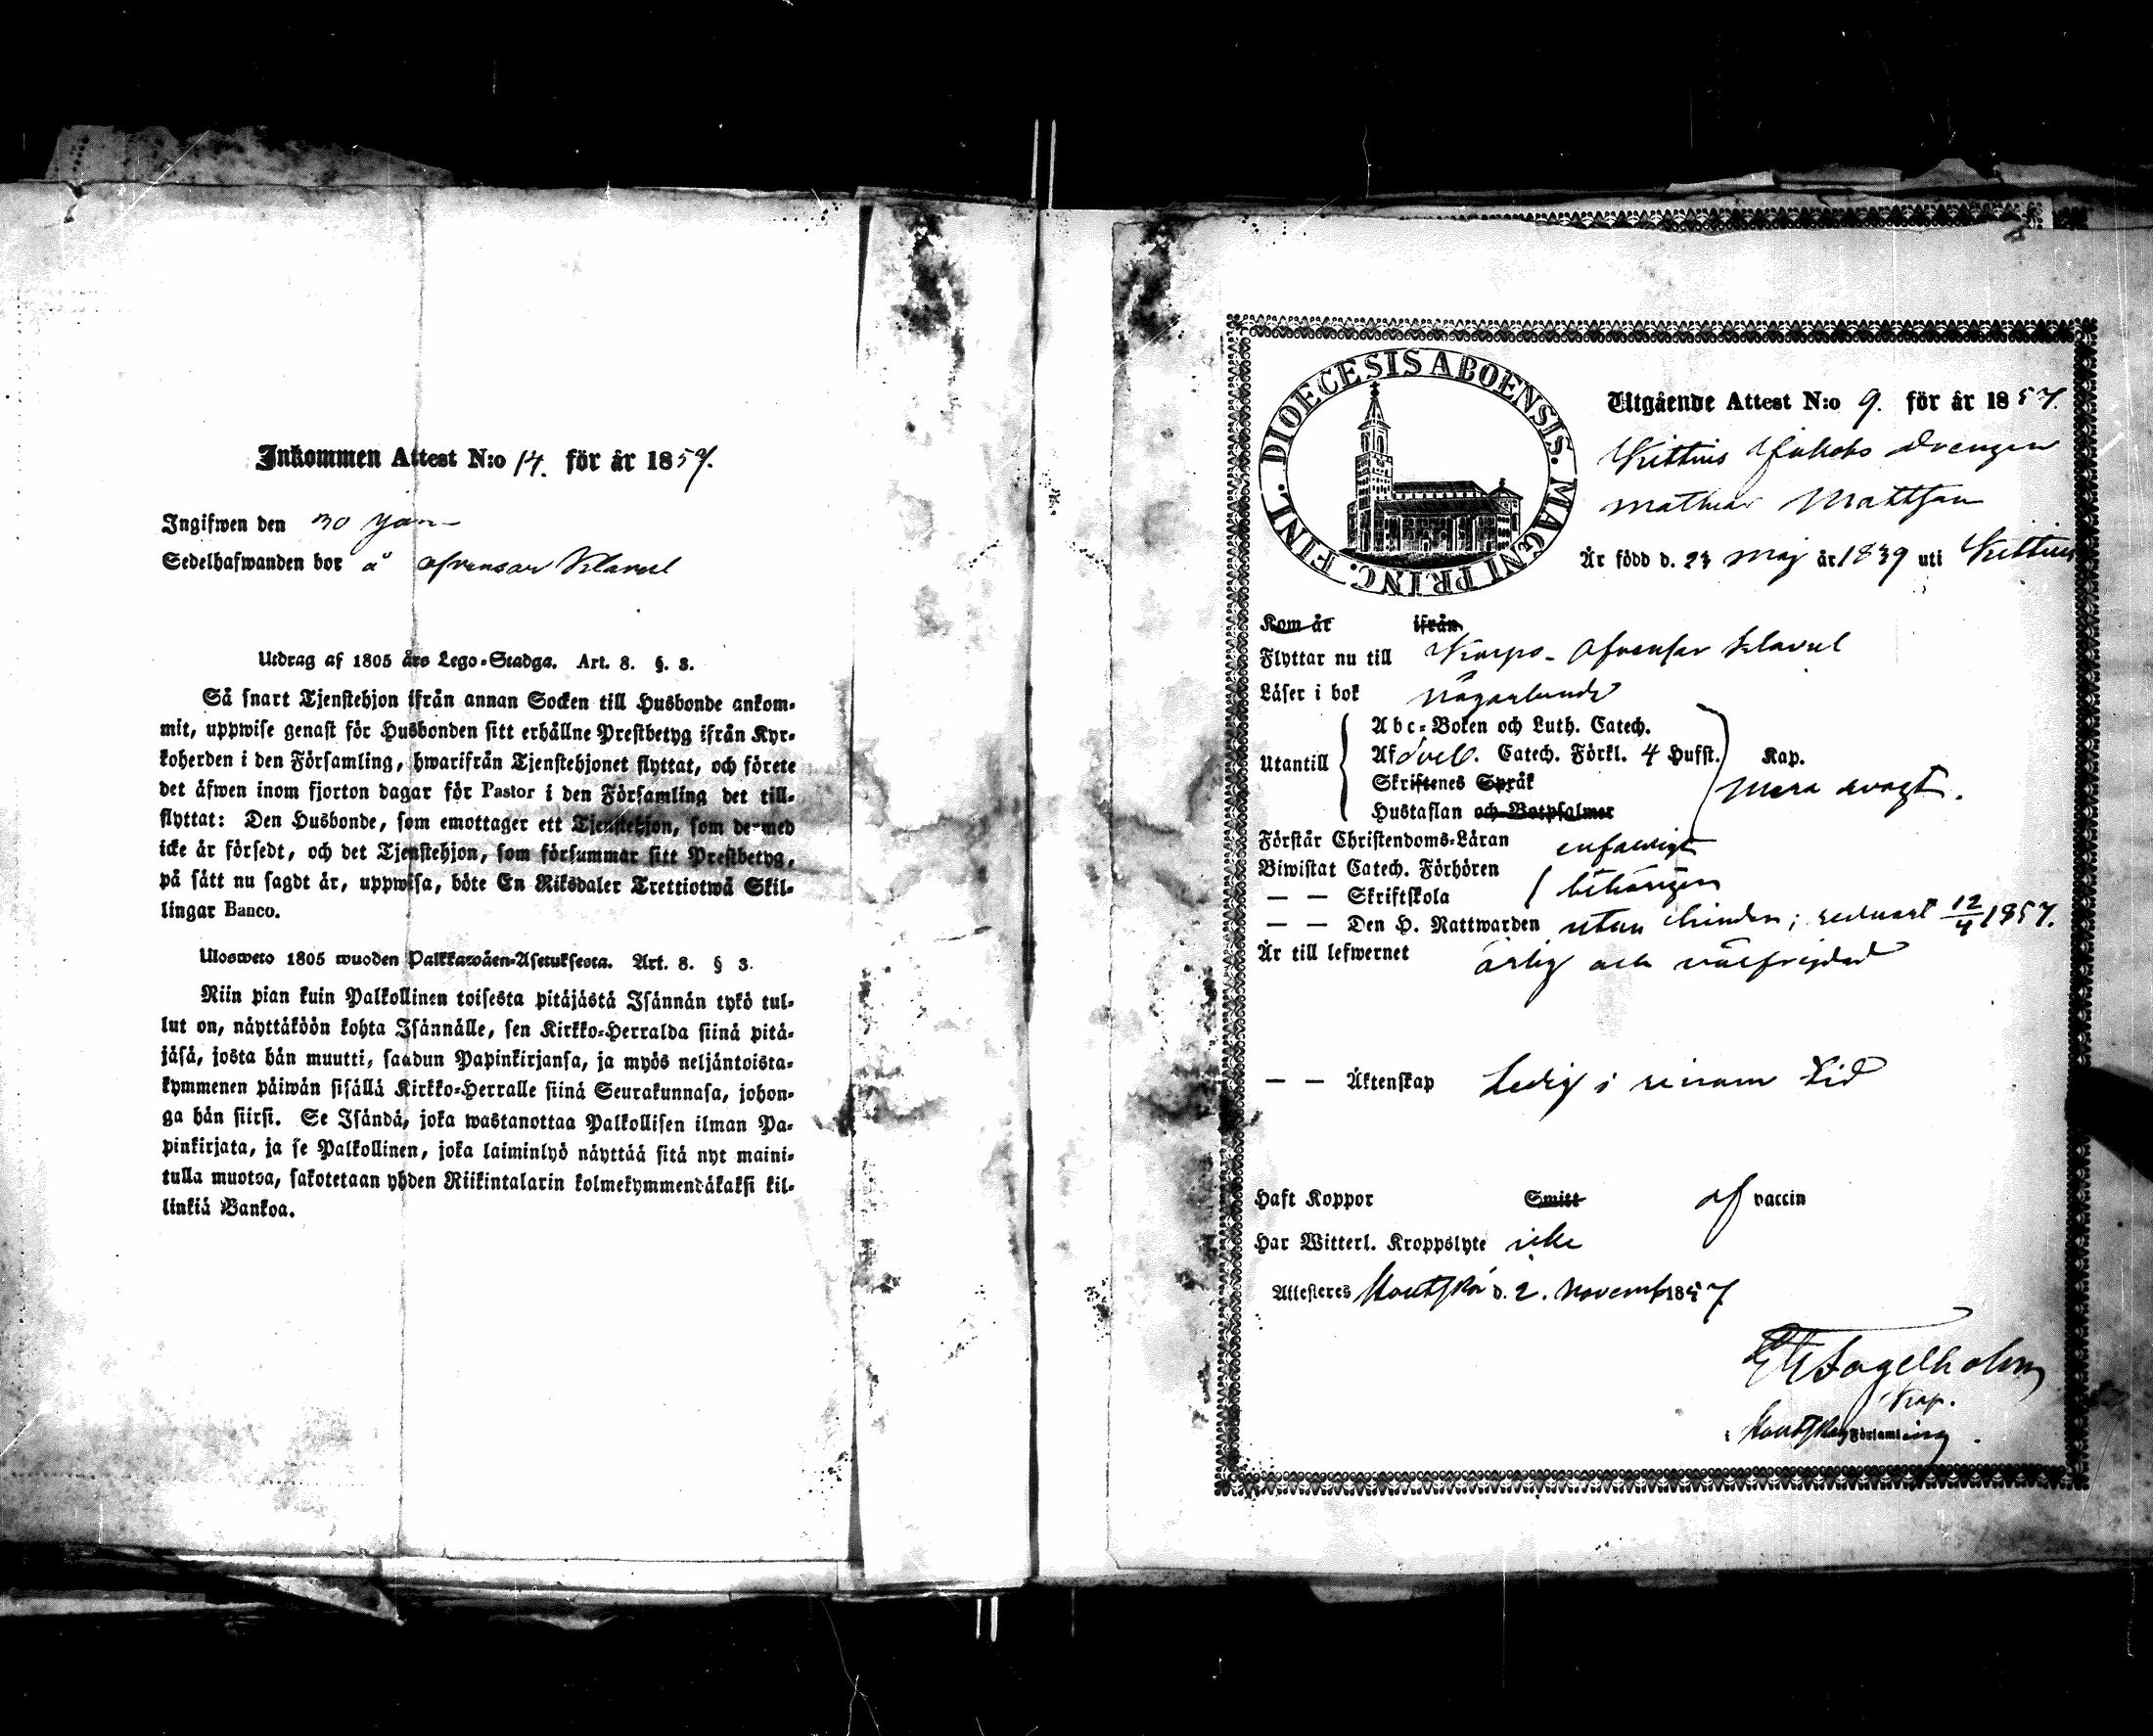 Inkommen Attest N:o 14. för år 1859.
Ingifwen den 30 Jan
Sedelhafwanden bor å Åfvensar Klavul
Utdrag af 1805 års Lego-Stadga. Art. 8. §. 3.
Så snart Tjenstehjon ifrån annan Socken till Husbonde ankom-
mit, uppwise genast för Husbonden sitt erhållne Prestbetyg ifrån Kyr-
koherden i den Församling, hwarifrån Tjenstehjonet flyttat, och förete
det äfwen inom fjorton dagar för Pastor i den Församling det till-
flyttat: Den Husbonde, som emottager ett Tjenstehjon, som dermed
icke är försedt, och det Tjenstehjon, som försummar sitt Prestbetyg,
på sätt nu sagdt är, uppwisa, böte En Riksdaler Trettiotwå Skil-
lingar Banco.
Ulosweto 1805 wuoden Palkkawäen-Asetuksesta. Art. 8. § 3.
Niin pian kuin Palkollinen toisesta pitäjästä Isännän tykö tul-
lut on, näyttäköön kohta Isännälle, sen Kirkko-Herralda siinä pitä-
jäsä, josta hän muutti, saadun Papinkirjansa, ja myös neljäntoista-
kymmenen päiwän sisällä Kirkko-Herralle siinä Seurakunnasa, johon-
ga hän siirsi. Se Isändä, joka wastanottaa Palkollisen ilman Pa-
pinkirjata, ja se Palkollinen, joka laiminlyö näyttää sitä nyt maini-
tulla muotoa, sakotetaan yhden Riikintalarin kolmekymmendäkaksi kil-
linkiä Bankoa.
DIOECESIS ABOENSIS. MAGNI PRINC. FINL.
Utgående Attest N:o 9. för år 1857.
Kittius Jakobs Drengen
Mathias Mattsson
Är född d. 23 Maj år 1839 uti Kittius
Kom år ifrån
Flyttar nu till Korpo- Åfvensar Klavul
Läser i bok någorlunda
Abc-Boken och Luth. Catech.
Utantill Af Svel. Catech. Förkl. 4 Hufst. Kap.
Skriftenes Språk mera svagt.
Hustaflan och Botpsalmer
Förstår Christendoms-Läran enfaldigt
Biwistat Catech. Förhören
— — Skriftskola behörigen
— — Den H. Nattwarden utan hinder; sednast 12/4 1857.
Är till lefwernet ärlig och välfrejdad
— — Äktenskap Ledig i sinom tid
Haft Koppor Smitt af vaccin
Har Witterl. Kroppslyte icke
Attesteres Houtskär d. 2. Novemb 1857
Fagelholm
Kap.
i Houtskär Församling.